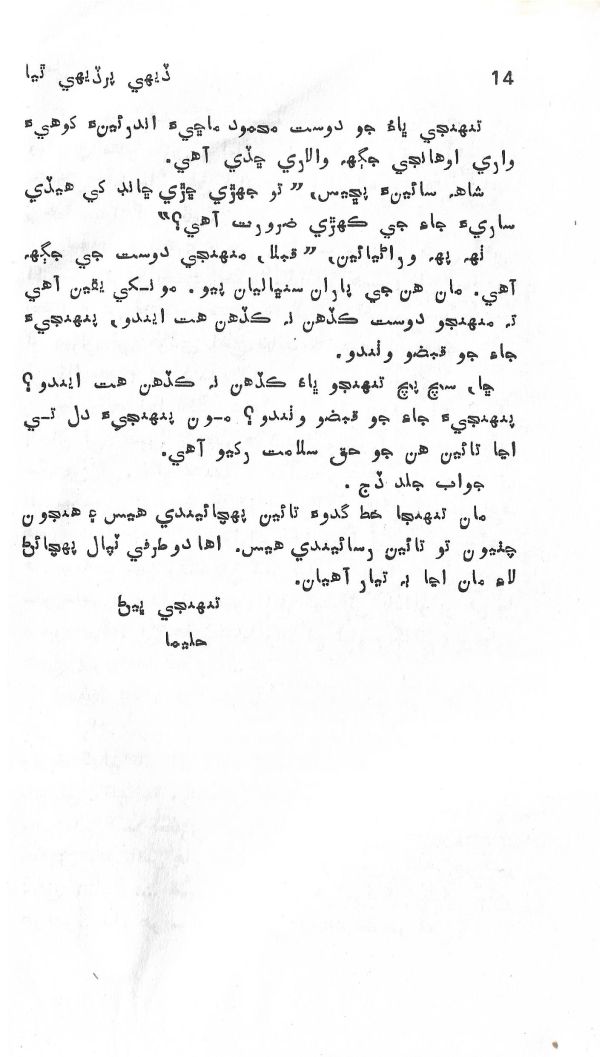 14 ڏيهي پرڏيهي ٿيا
تنهنجي ڀاءُ جو دوست محمود ماڇيءَ اندرئينءَ کوهيءَ
واري اوهانجي جڳهه والاري ڇڏي آهي.
شاهه سائينءَ پڇيس، ”تو جهڙي ڇڙي ڇانڊ کي هيڏي
ساريءَ جاءِ جي ڪهڙي ضرورت آهي؟“
ٺهه پهه وراڻيائين، ”قبلا، منهنجي دوست جي جڳهه
آهي. مان هن جي پاران سنڀاليان پيو. مونکي يقين آهي
ته منهنجو دوست ڪڏهن نه ڪڏهن هت ايندو، پنهنجيءَ
جاءِ جو قبضو وٺندو.
ڇا، سچ پچ تنهنجو ڀاءُ ڪڏهن نه ڪڏهن هت ايندو؟
پنهنجيءَ جاءِ جو قبضو وٺندو؟ مون پنهنجيءَ دل تي
اڃا تائين هن جو حق سلامت رکيو آهي.
جواب جلد ڏج.
مان تنهنجا خط گدوءَ تائين پهچائيندي هيس ۽ هنجون
چٺيون تو تائين رسائيندي هيس. اها دوطرفي ٽپال پهچائڻ
لاءِ مان اڃا به تيار آهيان.
تنهنجي ڀيڻ
حليما